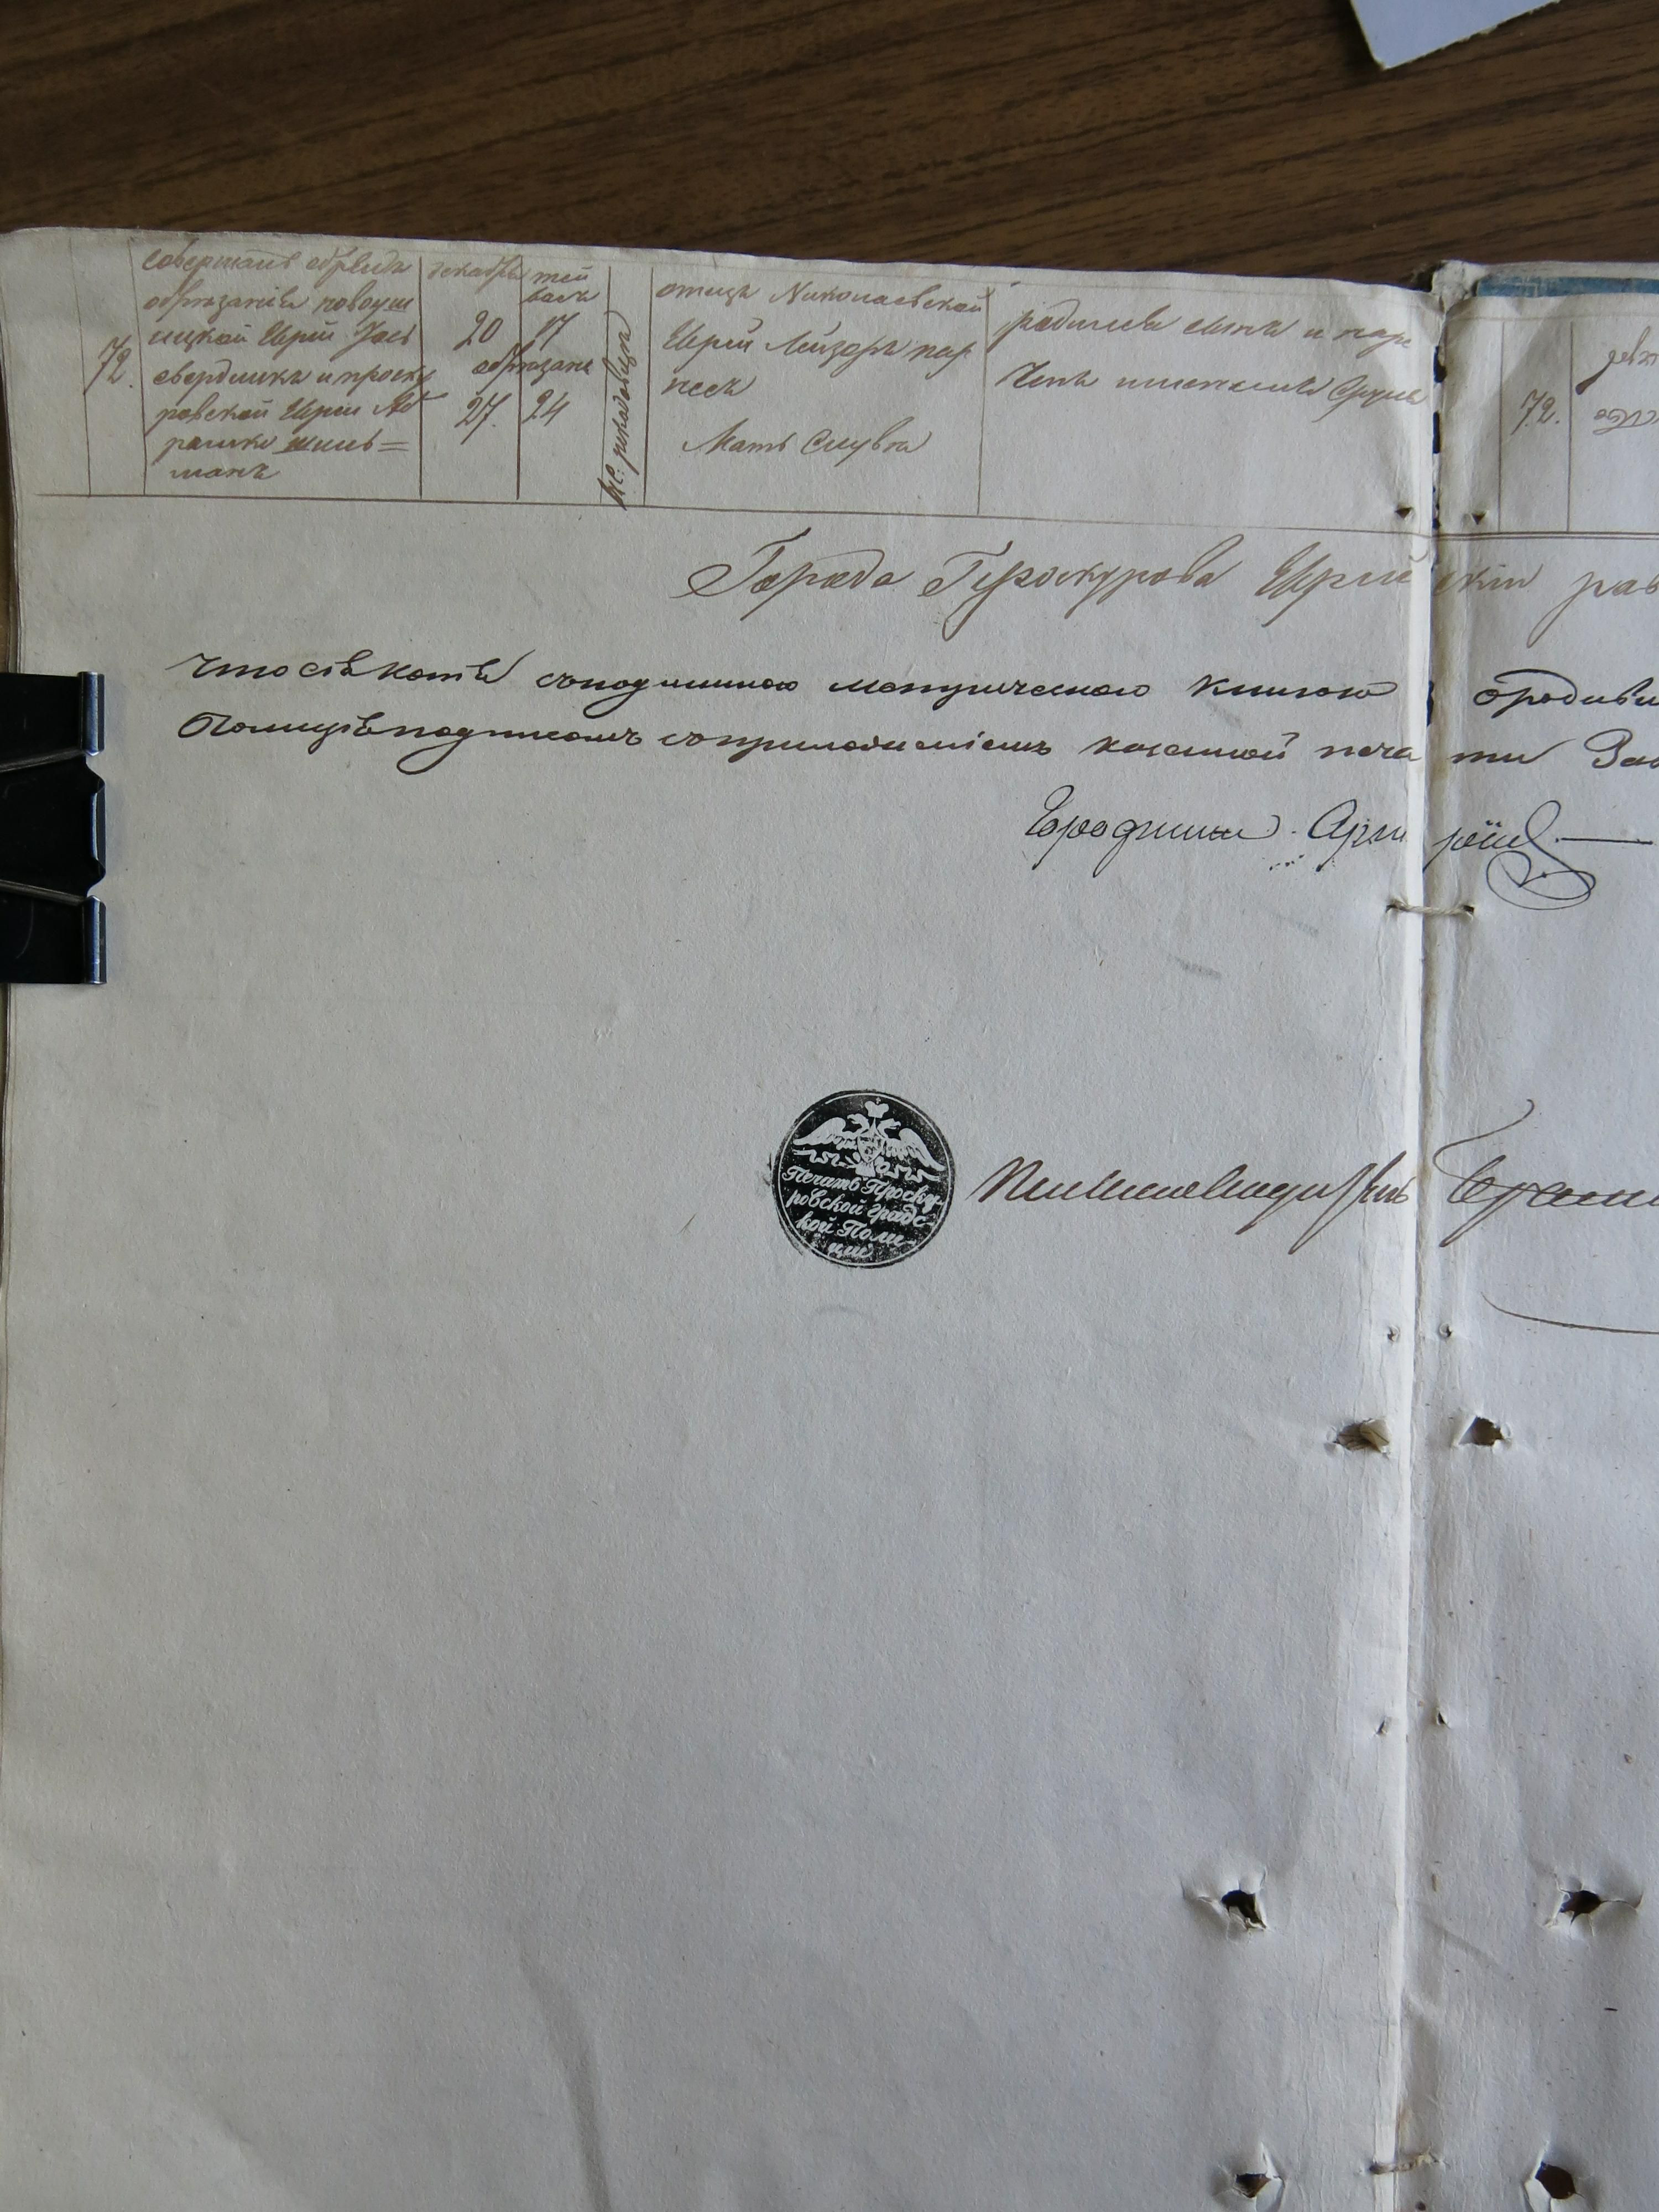 72.
совершалъ обрядъ
обрѣзанія новоуш
ицкой Еврей Іось
свердликъ и проску
ровской Еврей Аб
рамко шиль=
манъ
декабрь
20
обрѣзанъ
27.
тей
васъ
17
24
отецъ Николаевской
Еврей Лейзоръ пар
несъ
Мать Слувка
родился сынъ и наре
ченъ именемъ Сруль
72.
Города Проскурова Еврей скій рав
что сія копія съ подлинною метрическою книгою о родивш
Полиція подписомъ съ приложеніемъ казенной печа ти
Городничій
Печать Проску-
ровской Градс-
кой Поли-
ціи